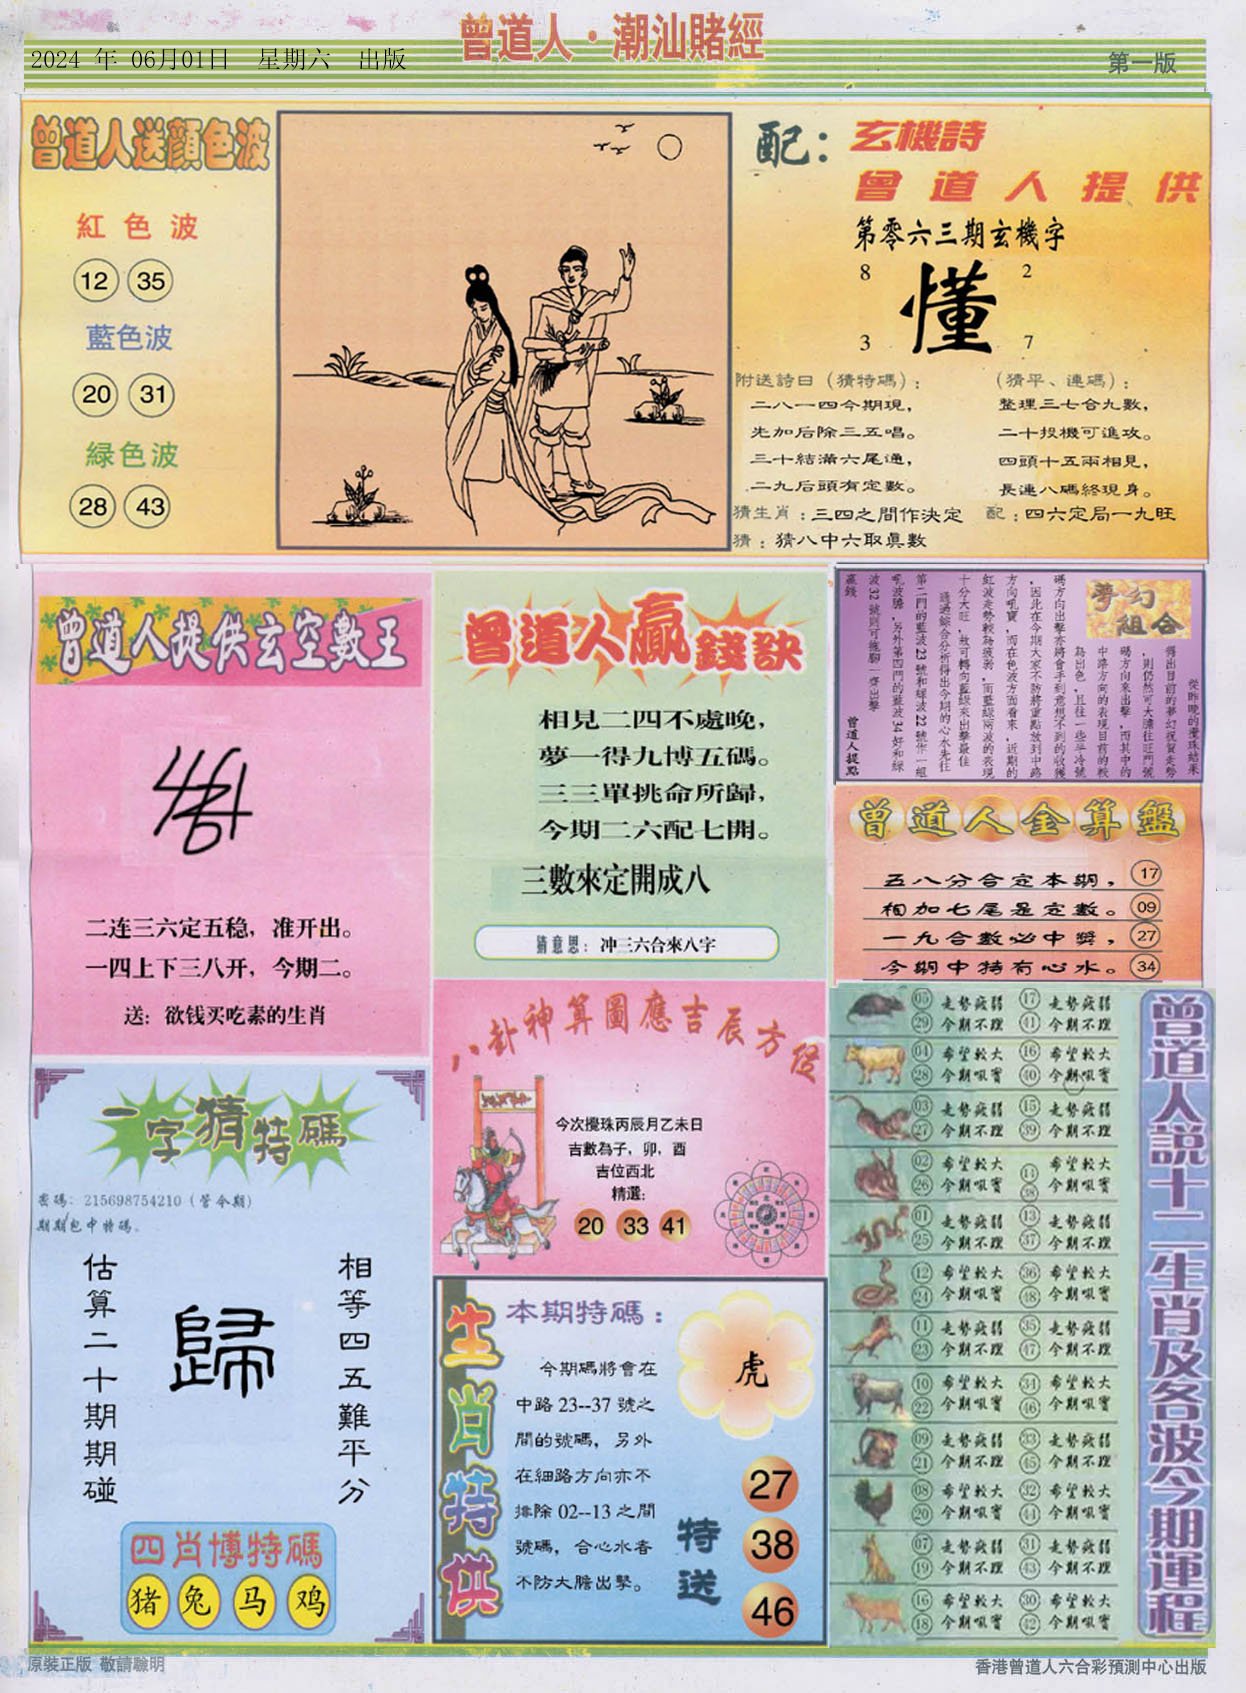 曾道人·潮汕賭經
2024 年 06月01日 星期六 出版
第一版
曾道人送顏色波
紅色波
12 35
藍色波
20 31
緑色波
28 43
配：玄機詩
曾道人提供
第零六三期玄機字
8 2
懂
3 7
附送詩曰（猜特碼）：
二八一四今期現，
先加后除三五唱。
三十結滿六尾通，
二九后頭有定數。
猜生肖：三四之間作決定
猜：猜八中六取眞數
（猜平、連碼）：
整理三七合九數，
二十投機可進攻。
四頭十五兩相見，
長連八碼終現身。
配：四六定局一九旺
曾道人提供玄空數王
二连三六定五稳，准开出。
一四上下三八开，今期二。
送：欲钱买吃素的生肖
曾道人贏錢訣
相見二四不處晚，
夢一得九博五碼。
三三單挑命所歸，
今期二六配七開。
三數來定開成八
猜意思：冲三六合來八字
夢幻
組合
從昨晚的攪珠結果
得出目前的夢幻祝賀走勢
，則仍然可大膽往旺門號
碼方向來出擊，而其中的
中路方向的表現目前的較
為出色，且往一些半冷號
碼方向出擊亦將會手到意想不到的收獲
，因此在今期大家不防將重點放到中路
方向吼寶，而在色波方面看來，近期的
紅波走勢較為疲弱，而藍綠兩波的表現
十分大旺，故可轉向藍綠來出擊最佳
通過綜合分析得出今期的心水先往
第二門的藍波23號和綠波22號作一組
吼波膽，另外第四門的藍波34好和綠
波32號則可拖腳一齊出擊
贏錢
曾道人提點
曾道人金算盤
五八分合定本期， 17
相加七尾是定數。 09
一九合數必中獎， 27
今期中特有心水。 34
八卦神算圖應吉辰方位
今次攪珠丙辰月乙未日
吉數為子，卯，酉
吉位西北
精選：
20 33 41
一字猜特碼
密碼：215698754210（管今期）
期期包中特碼。
相等四五難平分
歸
估算二十期期碰
四肖博特碼
猪 兔 马 鸡
生肖特供
本期特碼：
今期碼將會在
中路 23--37 號之
間的號碼，另外
在細路方向亦不
排除 02--13 之間
號碼，合心水者
不防大膽出擊。
虎
特送
27
38
46
曾道人説十二生肖及各波今期運程
05 走勢疲弱 17 走勢疲弱
29 今期不理 41 今期不理
04 希望較大 16 希望較大
28 今期吼寶 40 今期吼寶
03 走勢疲弱 15 走勢疲弱
27 今期不理 39 今期不理
02 希望較大 14 希望較大
26 今期吼寶 38 今期吼寶
01 走勢疲弱 13 走勢疲弱
25 今期不理 37 今期不理
12 希望較大 36 希望較大
24 今期吼寶 48 今期吼寶
11 走勢疲弱 35 走勢疲弱
23 今期不理 47 今期不理
10 希望較大 34 希望較大
22 今期吼寶 46 今期吼寶
09 走勢疲弱 33 走勢疲弱
21 今期不理 45 今期不理
08 希望較大 32 希望較大
20 今期吼寶 44 今期吼寶
07 走勢疲弱 31 走勢疲弱
19 今期不理 43 今期不理
16 希望較大 30 希望較大
18 今期吼寶 42 今期吼寶
原裝正版 敬請聽明
香港曾道人六合彩預測中心出版